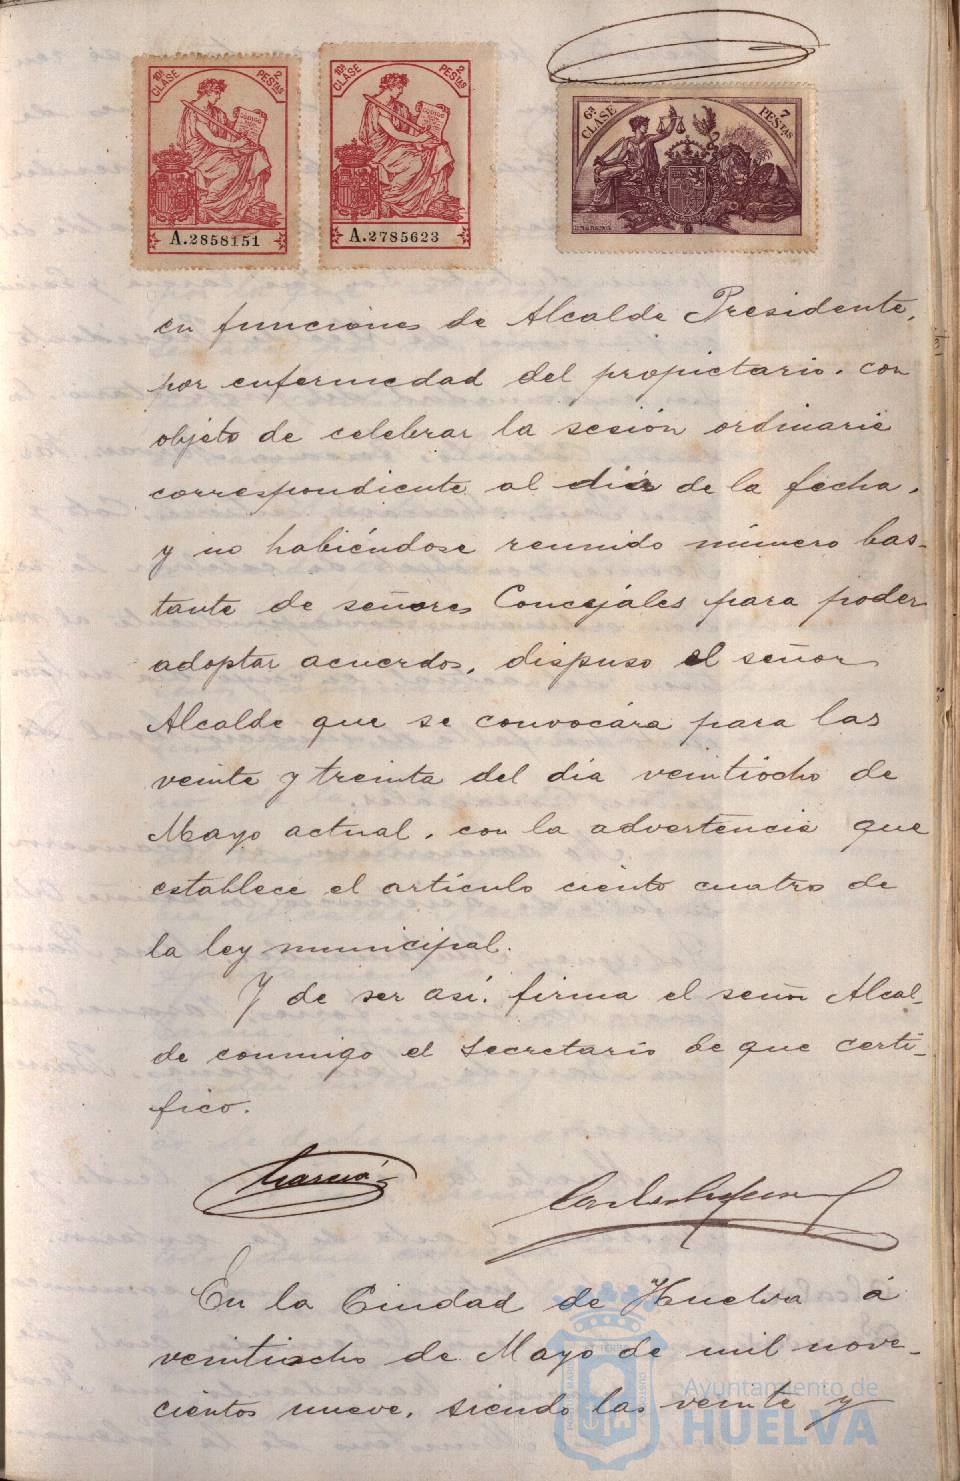 10ª CLASE 2 PESTAS
CODIGO
A.2858151
10ª CLASE 2 PESTAS
CODIGO
A.2785623
6ª CLASE 7 PESTAS
en funciones de Alcalde Presidente,
por enfermedad del propietario, con
objeto de celebrar la sesión ordinaria
correspondiente al dia de la fecha,
y no habiéndose reunido número bas-
tante de señores Concejales para poder
adoptar acuerdos, dispuso el señor
Alcalde que se convocára para las
veinte y treinta del dia veintiocho de
Mayo actual, con la advertencia que
establece el artículo ciento cuatro de
la ley municipal.
Y de ser así, firma el señor Alcal-
de conmigo el Secretario de que certi-
fico.
García
En la Ciudad de Huelva á
veintiocho de Mayo de mil nove-
cientos nueve, siendo las veinte y
Ayuntamiento de
HUELVA